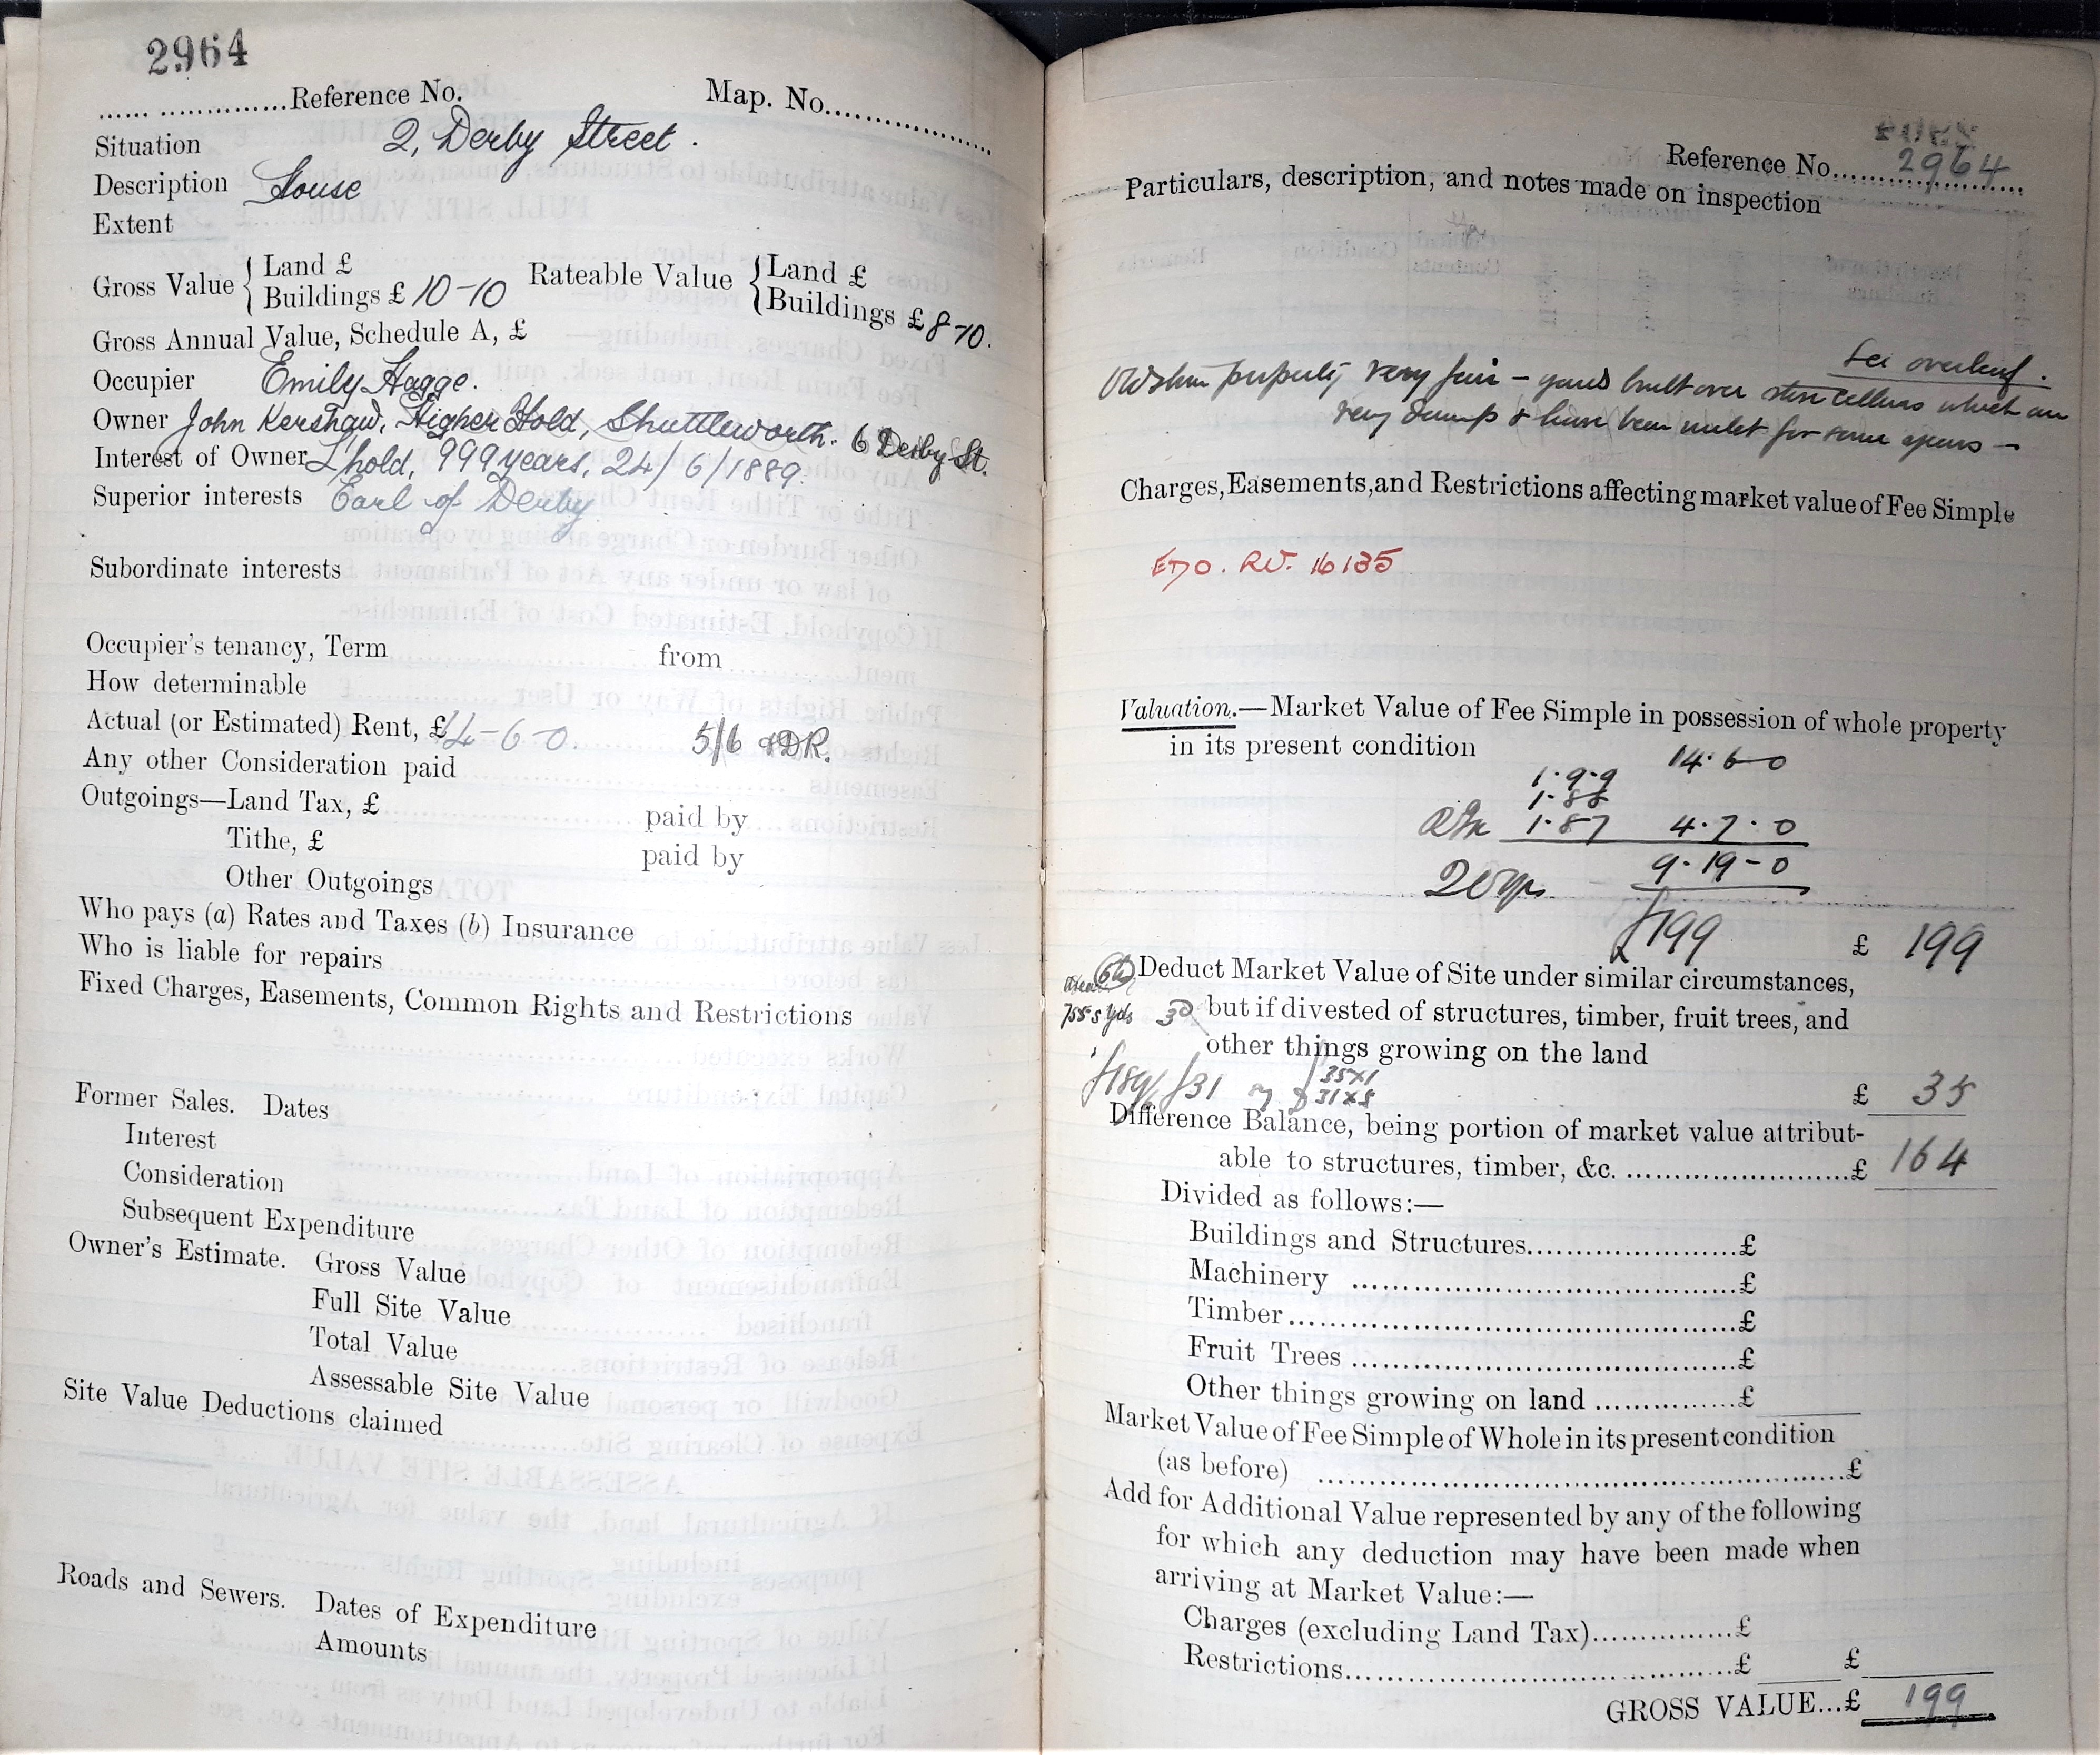 2964
...... ...............Reference No. Map. No.....................
Situation 2, Derby Street.
Description House
Extent
Gross Value { Land £
Buildings £ 10-10 Rateable Value { Land £
Buildings £ 8-10.
Gross Annual Value, Schedule A, £
Occupier Emily Hagge.
Owner John Kershaw, Higher Fold, Shuttleworth. 6 Derby St.
Interest of Owner L'hold, 999 years, 24/6/1889.
Superior interests Earl of Derby
Subordinate interests
Occupier's tenancy, Term from
How determinable
Actual (or Estimated) Rent, £14-6-0. 5/6 DR.
Any other Consideration paid
Outgoings—Land Tax, £ paid by
Tithe, £ paid by
Other Outgoings
Who pays (a) Rates and Taxes (b) Insurance
Who is liable for repairs
Fixed Charges, Easements, Common Rights and Restrictions
Former Sales. Dates
Interest
Consideration
Subsequent Expenditure
Owner's Estimate. Gross Value
Full Site Value
Total Value
Assessable Site Value
Site Value Deductions claimed
Roads and Sewers. Dates of Expenditure
Amounts
Reference No. 2964
Particulars, description, and notes made on inspection
See overleaf.
Old stone property very fair – yards built over cellars which are
very damp & have been unlet for some years –
Charges, Easements, and Restrictions affecting market value of Fee Simple
RV. 16135
Valuation.—Market Value of Fee Simple in possession of whole property
in its present condition
14.6-0
1.9.9
1.8.8
1.87 4.7.0
9-19-0
20 yrs
£199 £ 199
Deduct Market Value of Site under similar circumstances,
but if divested of structures, timber, fruit trees, and
other things growing on the land
£31 35x1
31x8
£ 35
Difference Balance, being portion of market value attribut-
able to structures, timber, &c. .........................£ 164
Divided as follows:—
Buildings and Structures.......................£
Machinery .........................................£
Timber................................................£
Fruit Trees .........................................£
Other things growing on land ...............£
Market Value of Fee Simple of Whole in its present condition
(as before) ......................................................£
Add for Additional Value represented by any of the following
for which any deduction may have been made when
arriving at Market Value:—
Charges (excluding Land Tax)...............£
Restrictions..........................................£ £
GROSS VALUE...£ 199